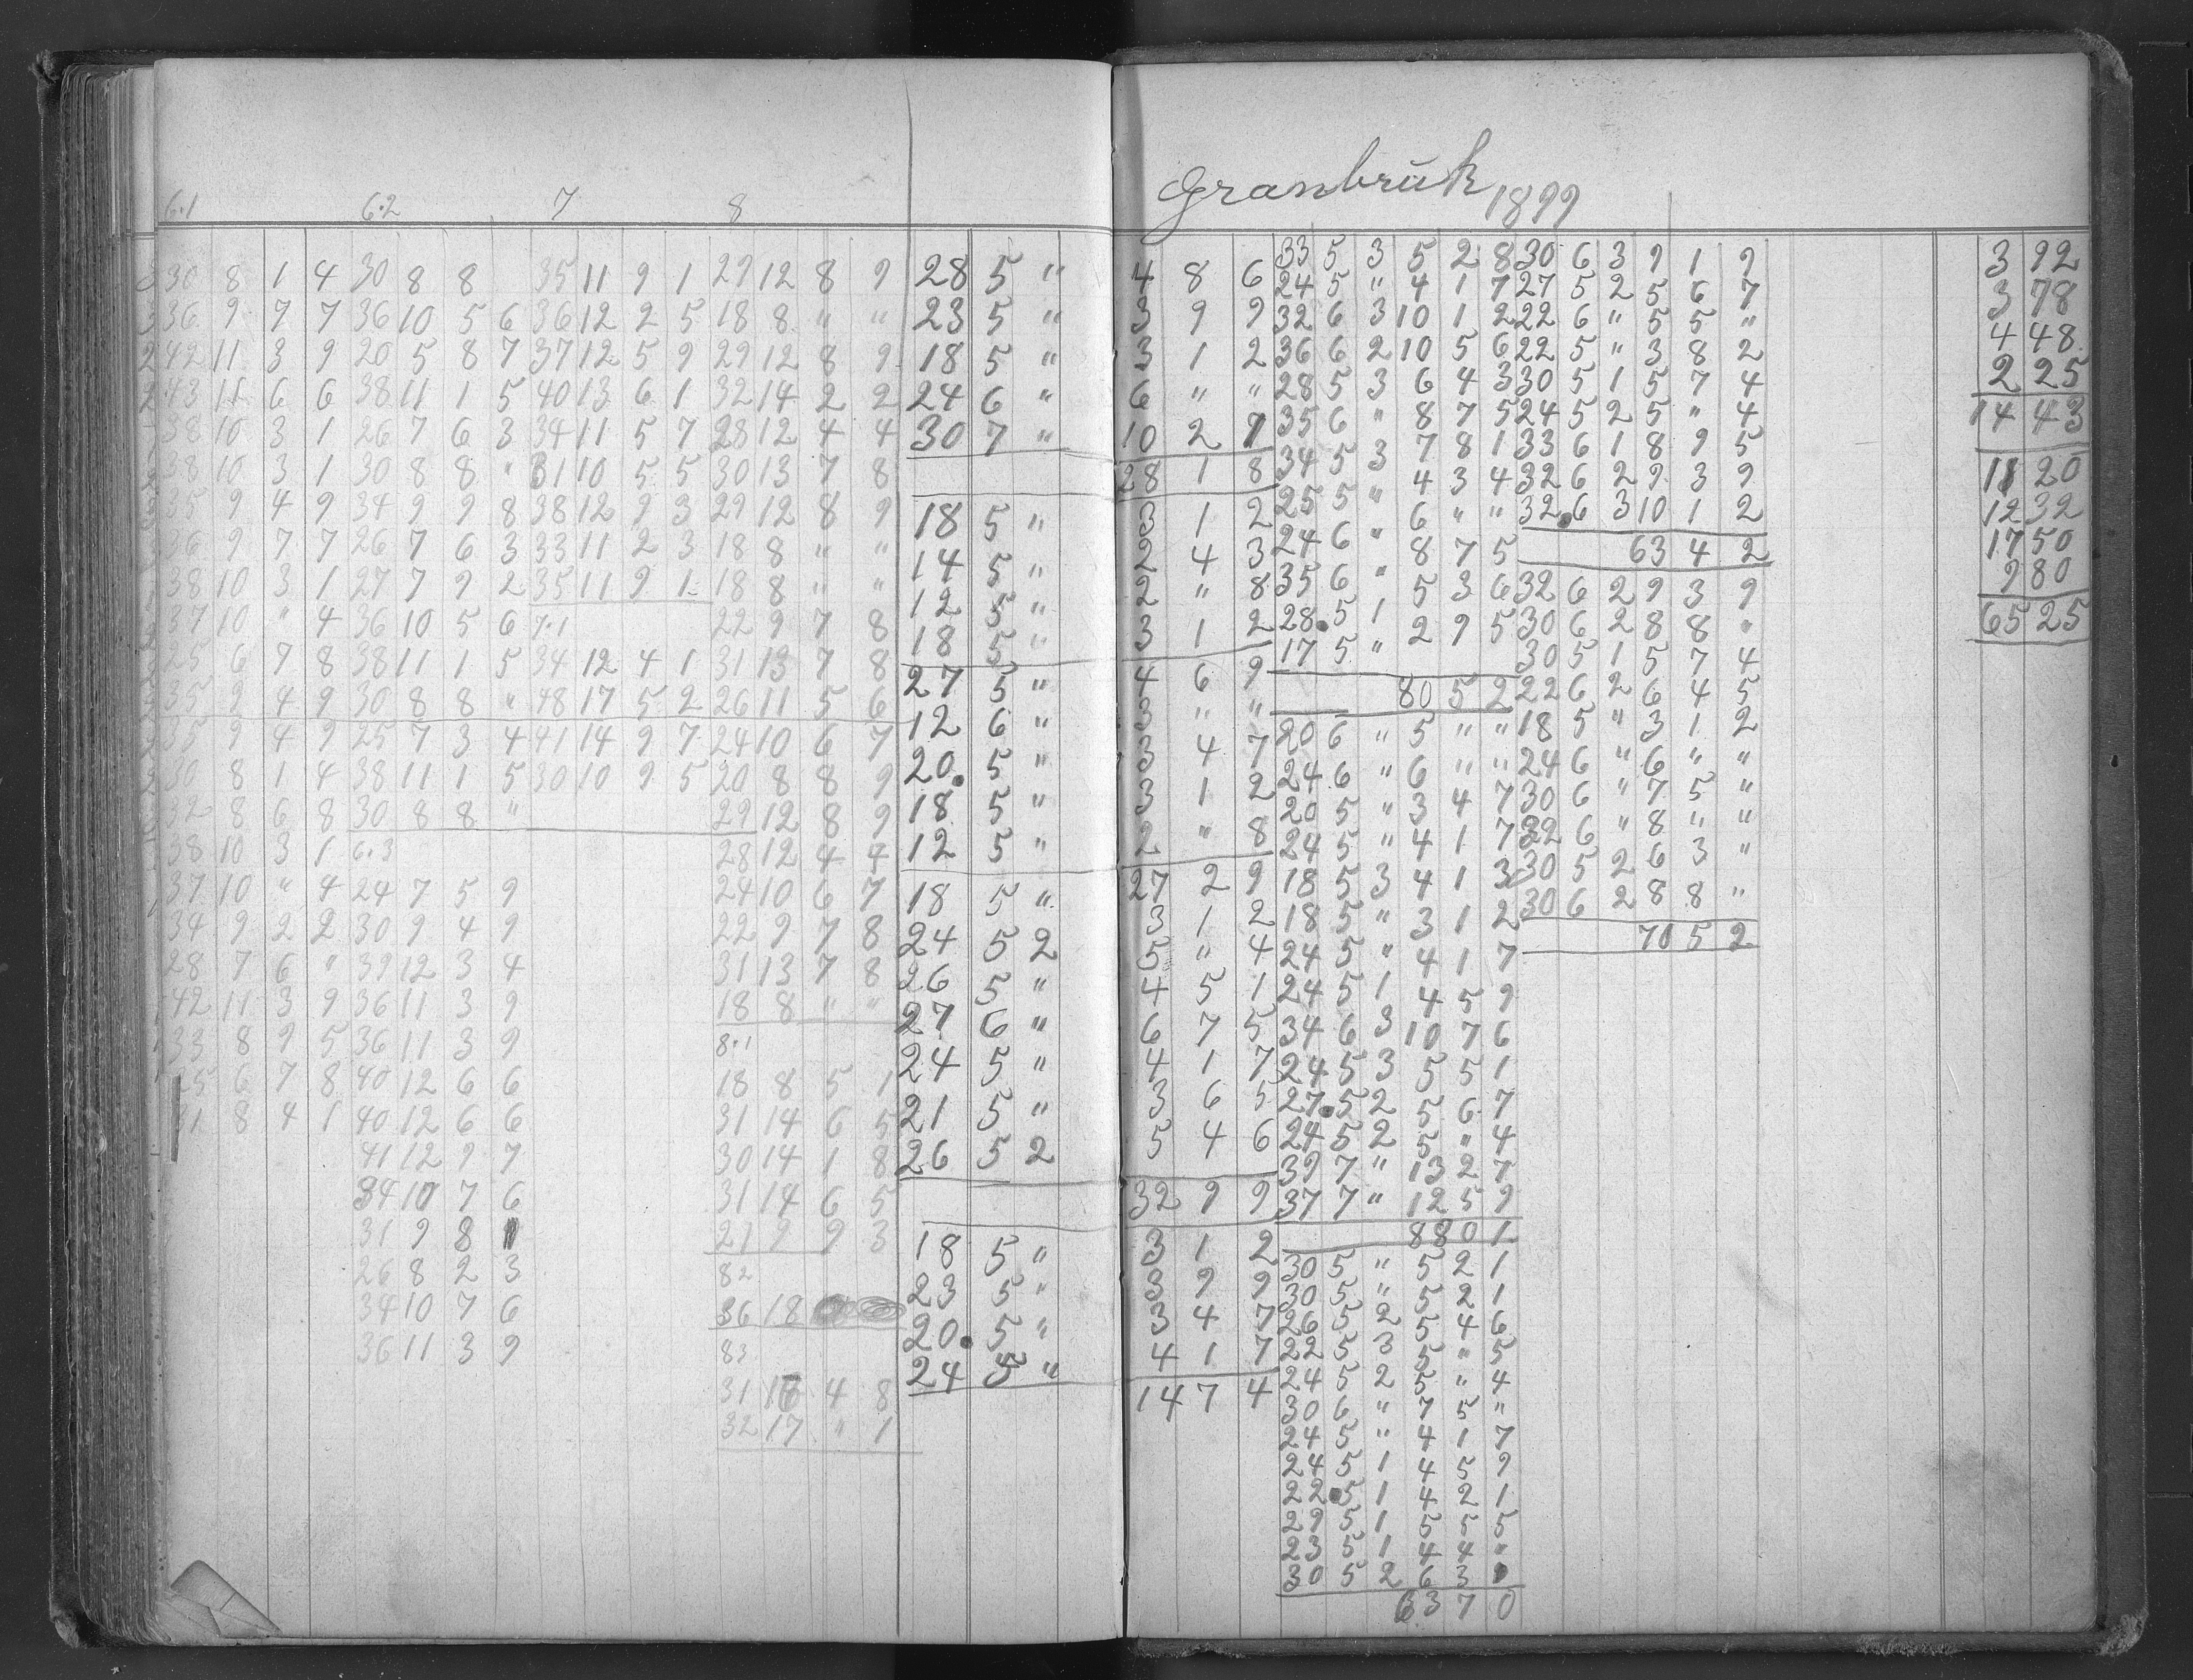 Granbrük 1899
6.1 6.2 7 8
30 8 1 4 30 8 8 35 11 9 1 29 12 8 9 28 5 "
36 9 7 7 36 10 5 6 36 12 2 5 18 8 " " 23 5 "
42 11 3 9 20 5 8 7 37 12 5 9 29 12 8 9 18 5 "
43 11 6 6 38 11 1 5 40 13 6 1 32 14 2 2 24 6 "
38 10 3 1 26 7 6 3 34 11 5 7 28 12 4 4 30 7 "
38 10 3 1 30 8 8 " 31 10 5 5 30 13 7 8
35 9 4 9 34 9 9 8 38 12 9 3 29 12 8 9 18 5 "
36 9 7 7 26 7 6 3 33 11 2 3 18 8 " " 14 5 "
38 10 3 1 27 7 9 2 35 11 9 1 18 8 " " 12 5 "
37 10 " 4 36 10 5 6 7.1 22 9 7 8 18 5 "
25 6 7 8 38 11 1 5 34 12 4 1 31 13 7 8 27 5 "
35 9 4 9 30 8 8 " 48 17 5 2 26 11 5 6 12 6 "
35 9 4 9 25 7 3 4 41 14 9 7 24 10 6 7 20. 5 "
30 8 1 4 38 11 1 5 30 10 9 5 20 8 8 9 18 5 "
32 8 6 8 30 8 8 " 29 12 8 9 12 5 "
38 10 3 1 6.3 28 12 4 4
37 10 " 4 24 7 5 9 24 10 6 7 18 5 "
34 9 2 2 30 9 4 9 22 9 7 8 24 5 2
28 7 6 " 39 12 3 4 31 13 7 8 26 5 "
42 11 3 9 36 11 3 9 18 8 " " 27 6 "
33 8 9 5 36 11 3 9 8.1 24 5 "
25 6 7 8 40 12 6 6 18 8 5 1 21 5 "
31 8 4 1 40 12 6 6 31 14 6 5 26 5 2
41 12 9 7 30 14 1 8
34 10 7 6 31 14 6 5
31 9 8 1 21 9 9 3 18 5 "
26 8 2 3 82 23 5 "
34 10 7 6 36 18 20. 5 "
36 11 3 9 83 24 5 "
31 16 4 8
32 17 " 1
4 8 6
3 9 9
3 1 2
6 " "
10 2 1
28 1 8
3 1 2
2 4 3
2 " 8
3 1 2
4 6 9
3 " "
3 4 7
3 1 2
2 " 8
27 2 9
3 1 2
5 " 4
4 5 1
6 7 5
4 1 7
3 6 5
5 4 6
32 9 9
3 1 2
3 9 9
3 4 7
4 1 7
14 7 4
33 5 3 5 2 8
24 5 " 4 1 7
32 6 3 10 1 2
36 6 2 10 5 6
28 5 3 6 4 3
35 6 " 8 7 5
34 5 3 7 8 1
25 5 " 4 3 4
24 6 " 6 " "
35 6 " 8 7 5
28. 5 1 5 3 6
17 5 " 2 9 5
80 5 2
20 6 " 5 " "
24 6 " 6 " "
20 5 " 3 4 7
24 5 " 4 1 7
18 5 3 4 1 3
18 5 " 3 1 2
24 5 " 4 1 7
24 5 1 4 5 9
34 6 3 10 7 6
24 5 3 5 5 1
27. 5 2 5 6 7
24 5 2 5 " 4
39 7 " 13 2 7
37 7 " 12 5 9
88 0 1
30 5 " 5 2 1
30 5 " 5 2 1
26 5 2 5 4 6
22 5 3 5 " 5
24 5 2 5 " 4
30 6 " 7 5 "
24 5 " 4 1 7
24 5 1 4 5 9
22. 5 1 4 2 1
29 5 1 5 5 5
23 5 1 4 4 "
30 5 2 6 3
63 7 0
30 6 3 9 1 9
27 5 2 5 6 7
22 6 " 5 5 "
22 5 " 3 8 2
30 5 1 5 7 4
24 5 2 5 " 4
33 6 1 8 9 5
32 6 2 9 3 9
32. 6 3 10 1 2
63 4 2
32 6 2 9 3 9
30 6 2 8 8 "
30 5 1 5 7 4
22 6 2 6 4 5
18 5 " 3 1 2
24 6 " 6 " "
30 6 " 7 5 "
32 6 " 8 " "
30 5 2 6 3 "
30 6 2 8 8 "
70 5 2
3 92
3 78
4 48
2 25
14 43
11 20
12 32
17 50
9 80
65 25